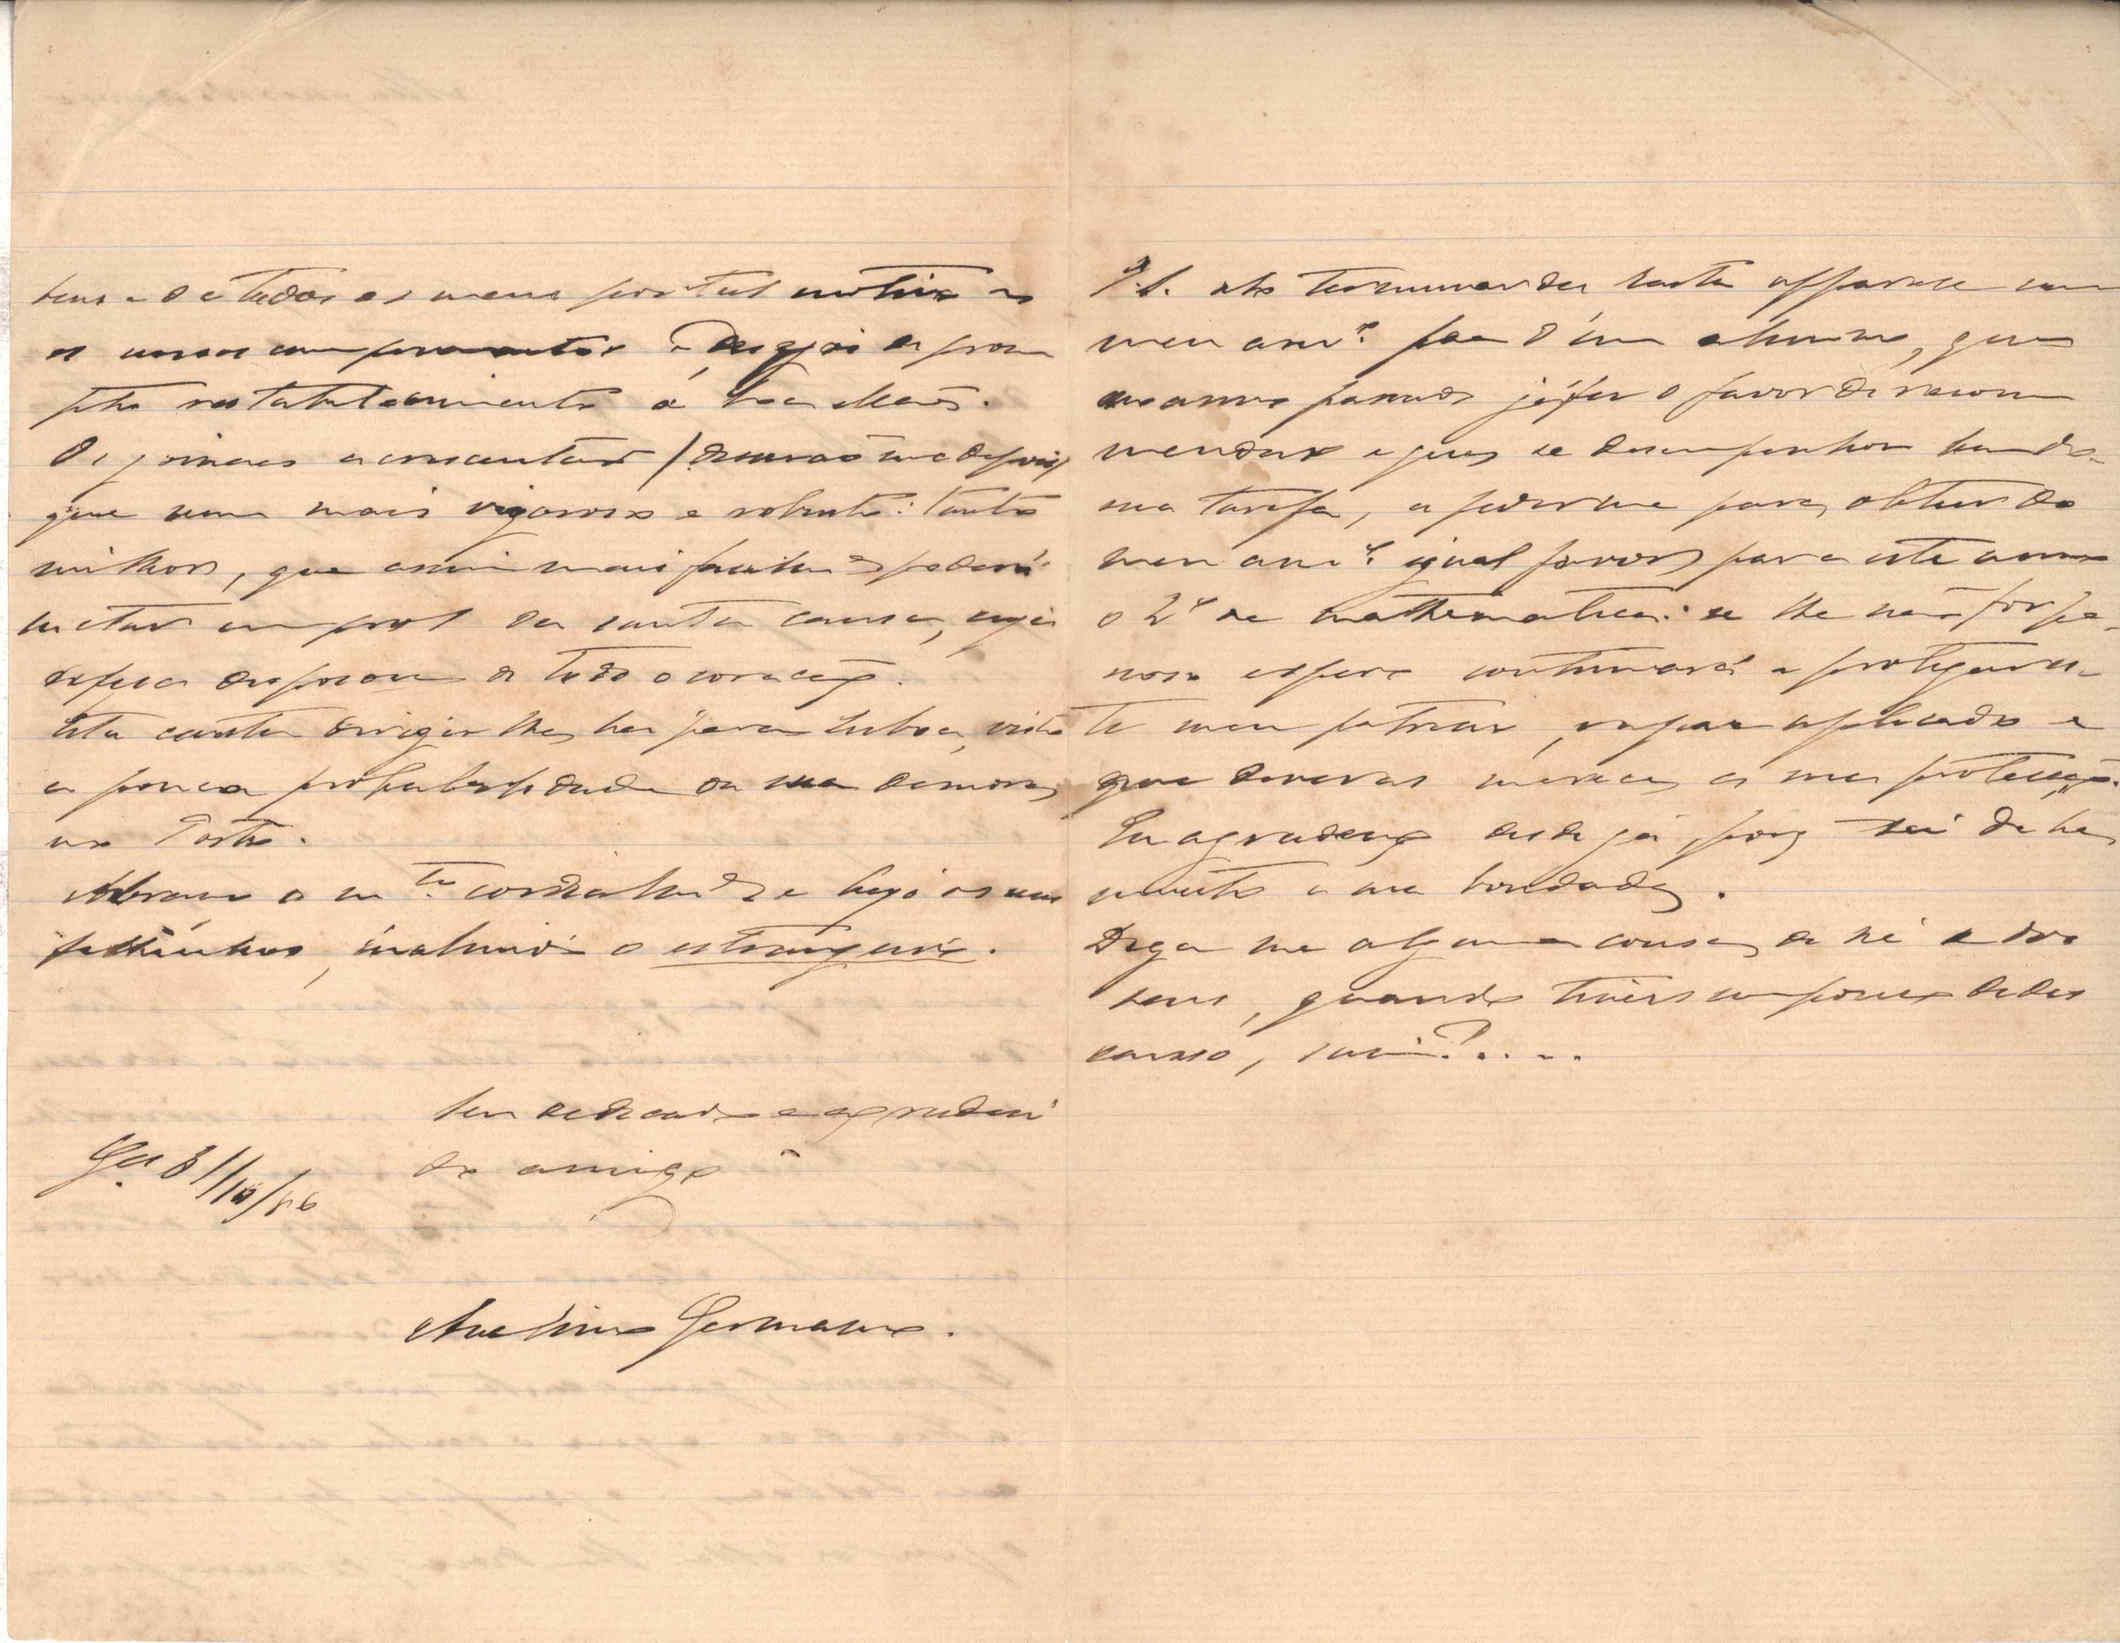 seus e de todos os meus por tal motivo
os nossos cumprimentos e desejos de prom
pto restabelecimento á boa Mãe.
Os jornaes accrescentam
que vem mais vigoroso e robusto: tanto
milhor, que assim mais facilm.e poderá
luctar em prol da santa causa, cuja
defeza desposou de todo o coração.
Esta carta dirigir-lhe hei para Lisboa, visto
a pouca probabilidade da sua demora
no Porto.
Abraça o m.to cordialm.e e beija os seus
filhinhos, incluindo o estrangeiro.
Seu dedicado e agradeci
do amigo
G.a 31/10/86
Avelino Germano.
P.S. Ao terminar da carta apparece um
meu am.o pae d'um alumno, que
no anno passado já fez o favor de recom
mendar e que se desempenhou bem da
sua tarefa, a pedir-me para obter do
meu am.o igual favor para este anno
o 2.o de mathematica: se lhe não fôr pe-
noso espero continuará a proteger es-
te meu patricio, rapaz aplicado e
que deveras merece a sua protecção.
Eu agradeço desde já, pois sei de ha
muito a sua bondade.
Diga-me alguma cousa de si e dos
seus, quando tiver um pouco de des
canso, sim?....